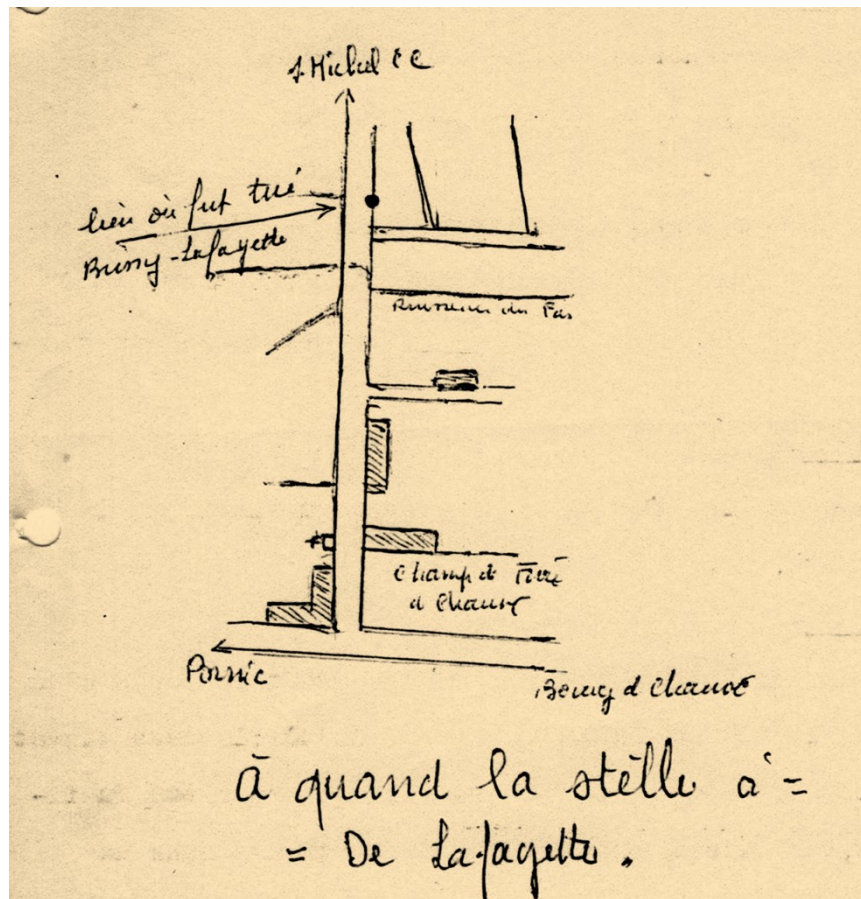 St Michel CC
lieu où fut tué
Bussy-Lafayette
Ruisseau du Fas
Champ de Tir
d Chauvé
Pornic
Bourg d Chauvé
à quand la stèlle à =
= De Lafayette.